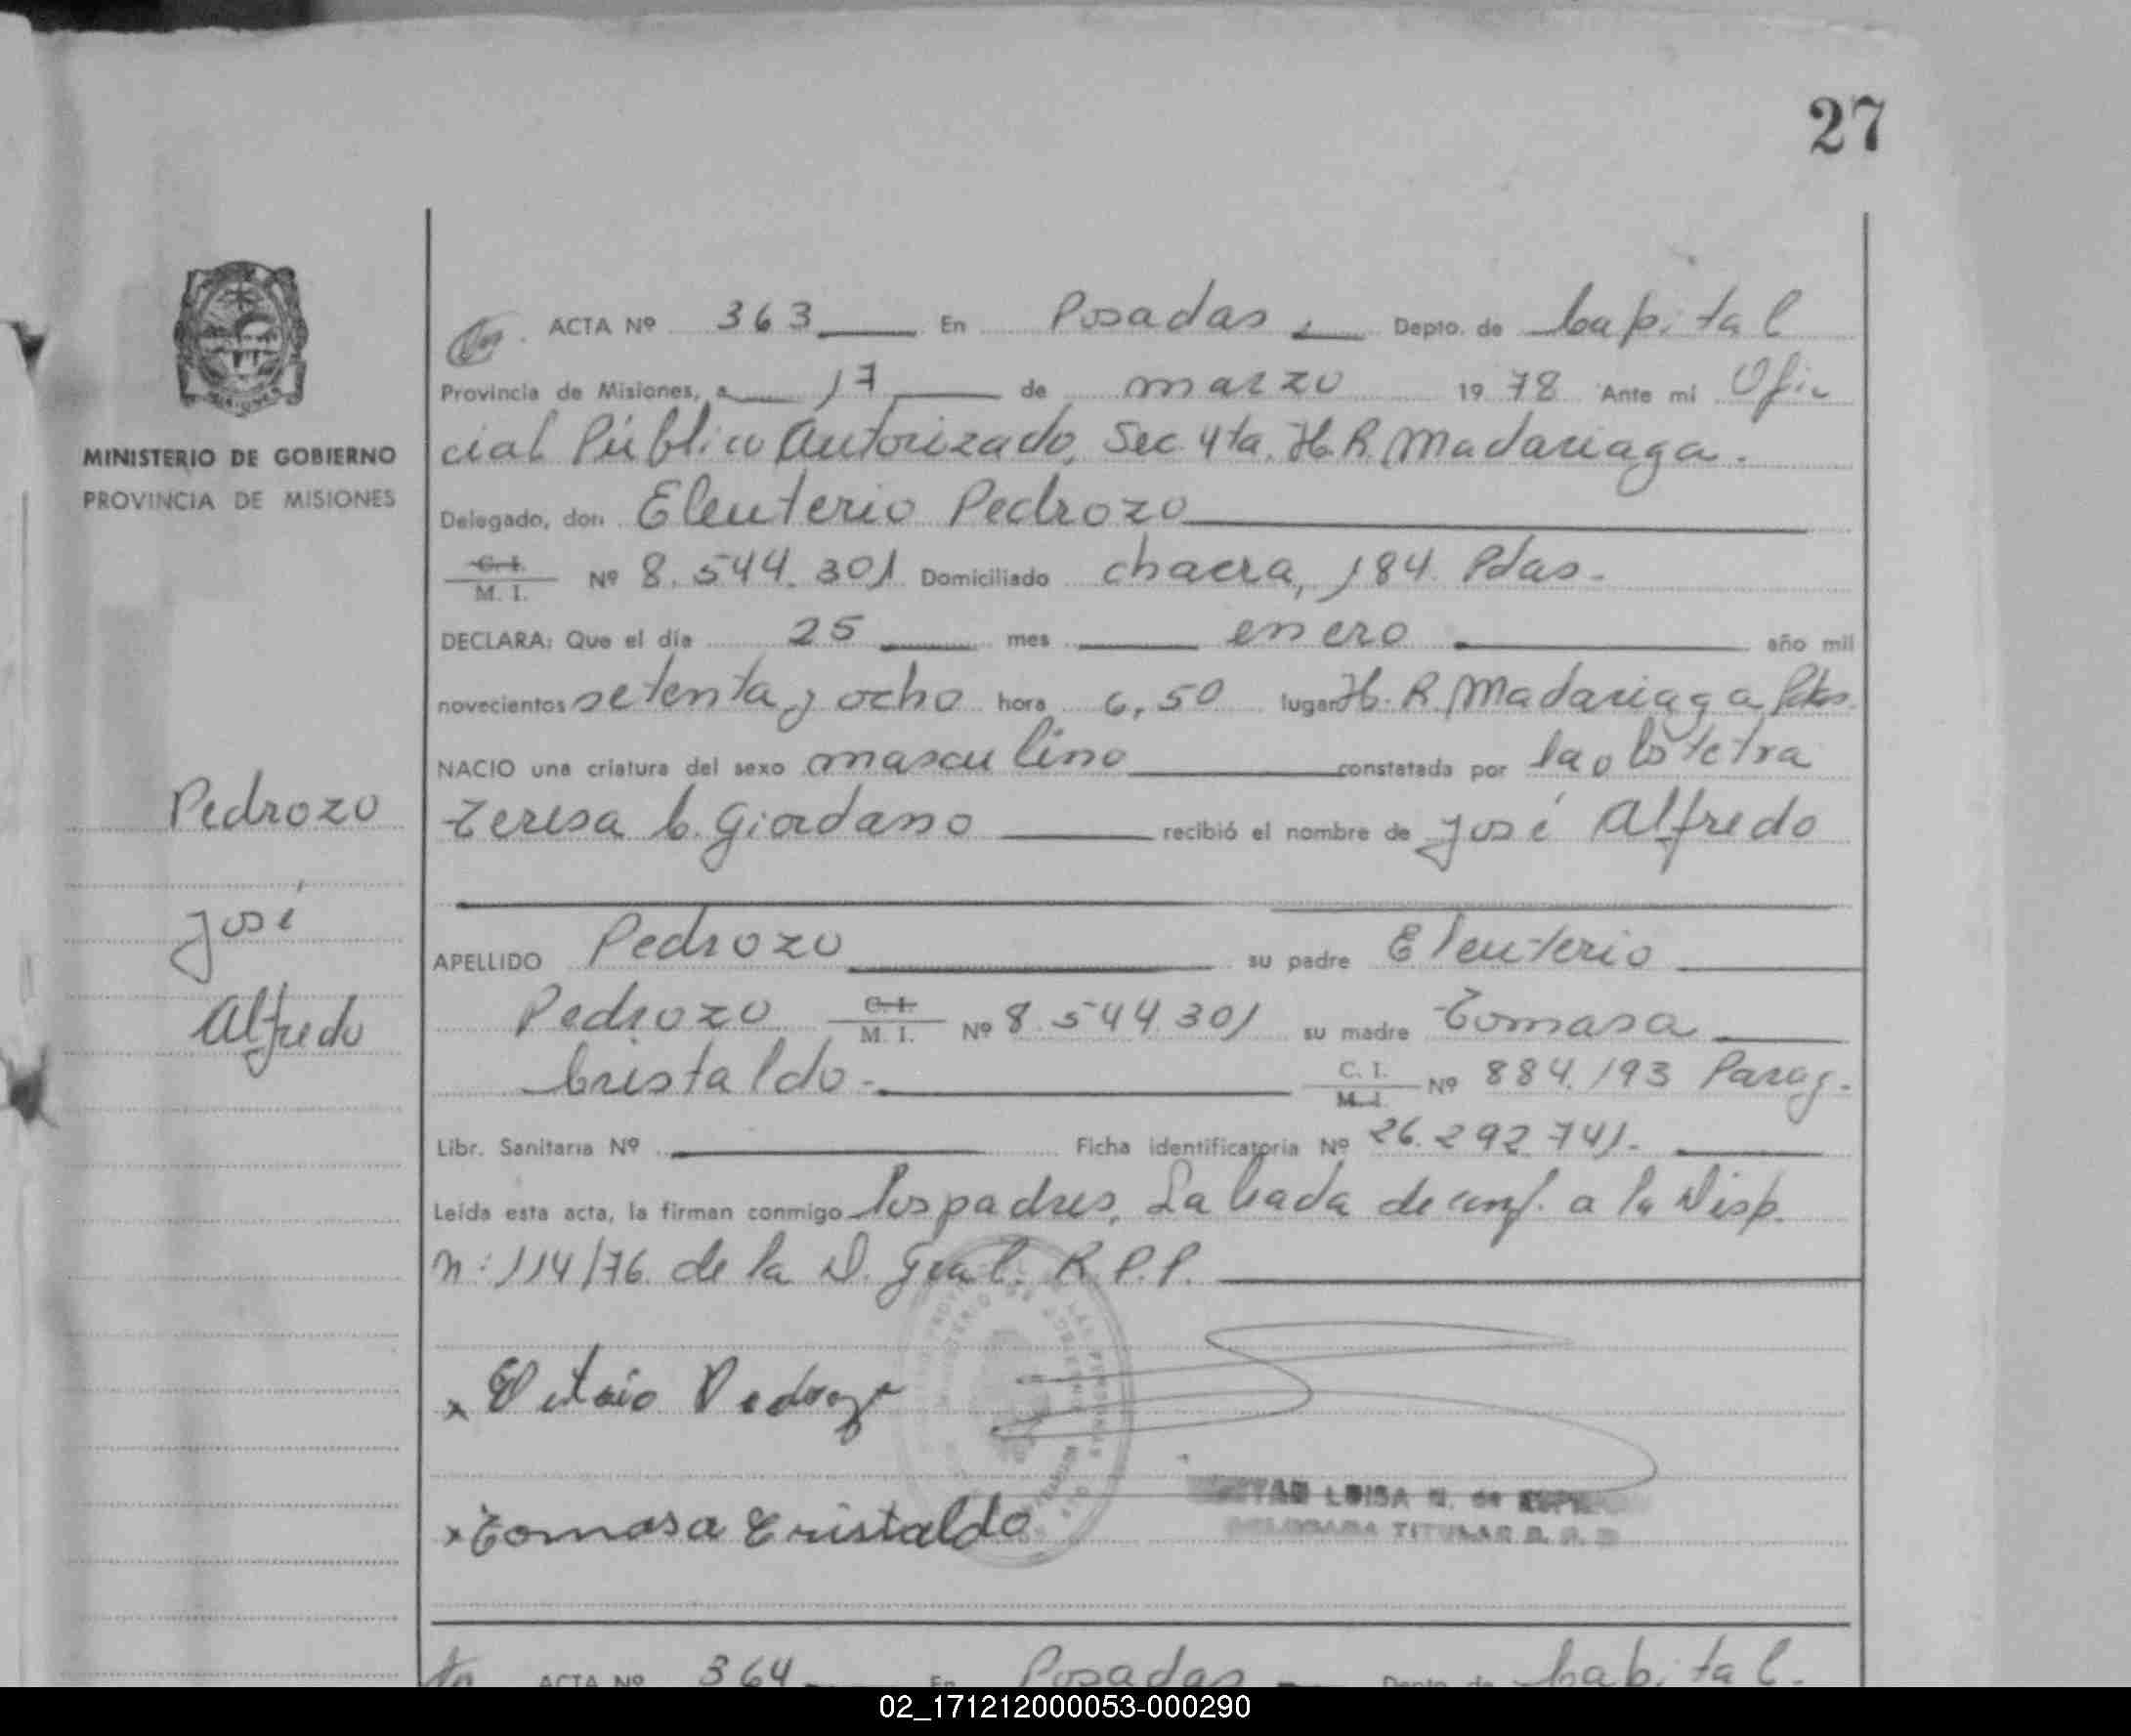 27
ACTA Nº 363 En Posadas, Depto. de Capital
Provincia de Misiones, a 17 de marzo 1978 Ante mi Ofi
cial Público Autorizado, Sec. 4ta. H. R. Madariaga.
MINISTERIO DE GOBIERNO
PROVINCIA DE MISIONES
Delegado, don Eleuterio Pedrozo
C. I.
M. I. Nº 8.544.301 Domiciliado chacra, 184 Pdas.
DECLARA: Que el día 25 mes enero año mil
novecientos setenta y ocho hora 6,50 lugar H. R. Madariaga Pdas.
NACIO una criatura del sexo masculino constatada por la obstetra
Teresa C. Giordano recibió el nombre de José Alfredo
Pedrozo
José
Alfredo
APELLIDO Pedrozo su padre Eleuterio
Pedrozo C. I. M. I. Nº 8.544301 su madre Tomasa
Cristaldo.- C. I. M. I. Nº 884.193 Parag.
Libr. Sanitaria Nº Ficha identificatoria Nº 26.292.741.
Leída esta acta, la firman conmigo los padres, Labrada de conf. a la Disp.
n: 114/76 de la D. Gral. R.P.P.
x Pedrozo
x Tomasa Cristaldo
LUISA N. de
TITULAR
ACTA Nº 364 En Posadas Depto. de Capital.
02_171212000053-000290